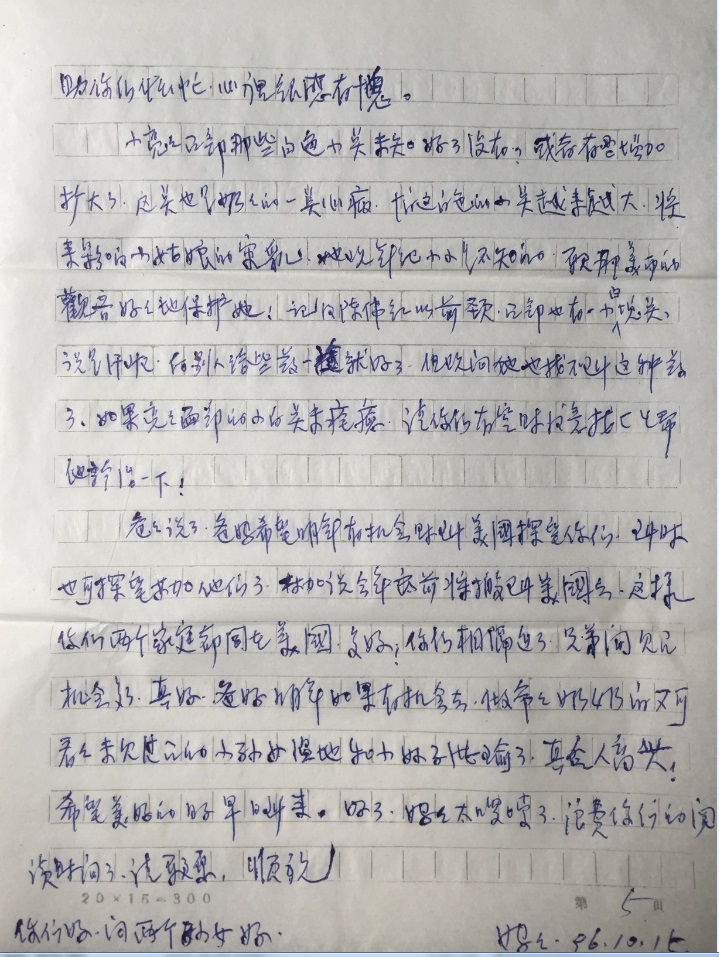 助你们忙忙.心里很感有愧。
小亮亮面部那些白色小点未知好了没有?或者有否增加
扩大了.这点也是奶奶的一块心病.怕这白色的小点越来越大.将
来影响小姑娘的.她现年纪小小还不知的.愿那美丽的
觀音好好地保护她!记得陈伟红以前颈.面部也有一小白块点.
说是汗斑.有别人给些药一擦就好了.但现问她也找不到这种药
了.如果亮亮面部的小白点未痊癒.请你们有空时注意找医生帮
她诊治一下!
爸爸说了.爸妈希望明年有机会时到美國探望你们.到时
也可探望加他们了.加说今年底前将搬到美國去.这样
你们两个家庭都同在美國.多好!你们相隔近了.兄弟间见面
机会多.真好.爸妈明年如果有机会去.做爷爷奶奶的又可
看看未见过面的小孙女湿地和小妹了.真令人高兴!
希望美好的日子早日到来。好了.妈妈太啰嗦了.浪费你们的阅
读时间了.请原谅.顺祝
20×15=300
第 5 页
你们好.问两个孙女好.
妈妈.96.10.15.